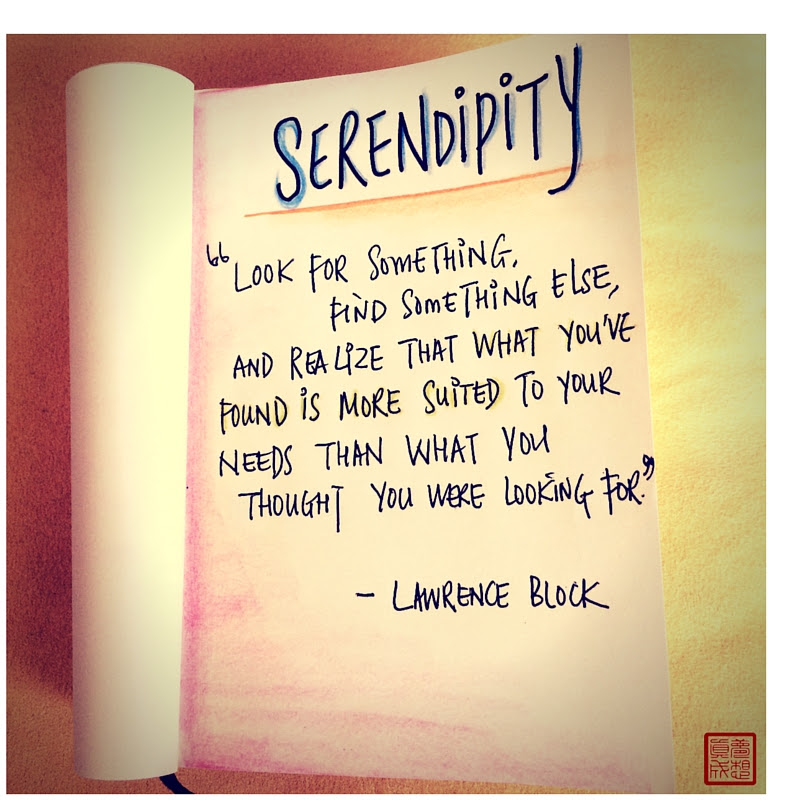 SERENDiPiTY
“LOOK FOR SOMETHiNG,
FiND SOMETHiNG ELSE,
AND REALiZE THAT WHAT YOU'VE
FOUND iS MORE SUiTED TO YOUR
NEEDS THAN WHAT YOU
THOUGHT YOU WERE LOOKiNG FOR.”
– LAWRENCE BLOCK